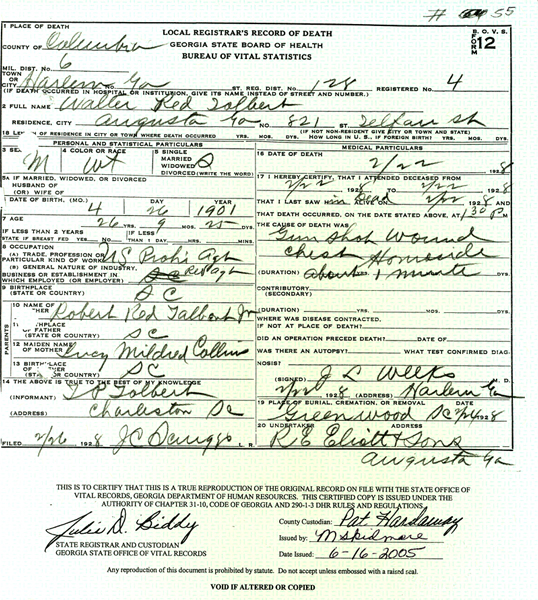 # 55
1 PLACE OF DEATH
LOCAL REGISTRAR'S RECORD OF DEATH
GEORGIA STATE BOARD OF HEALTH
BUREAU OF VITAL STATISTICS
B. O. V. S.
FORM
12
COUNTY OF Columbia
MIL. DIST. 6
TOWN OR
CITY Harlem Ga NO. ST. REG. DIST. NO. 128 REGISTERED NO. 4
(IF DEATH OCCURRED IN HOSPITAL OR INSTITUTION, GIVE ITS NAME INSTEAD OF STREET AND NUMBER.)
2 FULL NAME Walter Red Tolbert
RESIDENCE, CITY Augusta Ga NO. 821 Telfair ST.
(IF NOT NON-RESIDENT GIVE CITY OR TOWN AND STATE)
18 LENGTH OF RESIDENCE IN CITY OR TOWN WHERE DEATH OCCURRED YRS. MOS. DYS. HOW LONG IN U. S., IF FOREIGN BIRTH. YRS. MOS. DYS.
PERSONAL AND STATISTICAL PARTICULARS
MEDICAL PARTICULARS
3 SEX M 4 COLOR OR RACE Wt 5 SINGLE MARRIED WIDOWED S (WRITE THE WORD)
16 DATE OF DEATH 2/22 1928
5A IF MARRIED, WIDOWED, OR DIVORCED
HUSBAND OF
(OR) WIFE OF
17 I HEREBY CERTIFY, THAT I ATTENDED DECEASED FROM
2/22 1928 TO 2/22 1928
THAT I LAST SAW HIM Dead 2/22 1928 AND
DATE OF BIRTH. (MO.) 4 DAY 26 YEAR 1901
THAT DEATH OCCURRED, ON THE DATE STATED ABOVE, AT 1:30 P M.
7 AGE 26 YRS. 9 MOS. 25 DYS.
THE CAUSE OF DEATH WAS:
IF LESS THAN 2 YEARS
STATE IF BREAST FED YES. NO.
IF LESS
THAN 1 DAY HRS. MINS.
Gun Shot Wound
chest Homocide
8 OCCUPATION
(A) TRADE, PROFESSION OR
PARTICULAR KIND OF WORK U S Prohi Agt
(B) GENERAL NATURE OF INDUSTRY,
BUSINESS OR ESTABLISHMENT IN
WHICH EMPLOYED (OR EMPLOYER)
(DURATION) About 1 minute DYS.
CONTRIBUTORY
(SECONDARY)
9 BIRTHPLACE
(STATE OR COUNTRY) S C
(DURATION) YRS. MOS. DYS.
PARENTS
10 NAME OF
FATHER Robert Red Talbert Jr
WHERE WAS DISEASE CONTRACTED,
IF NOT AT PLACE OF DEATH?
11 BIRTHPLACE
OF FATHER
(STATE OR COUNTRY) S C
DID AN OPERATION PRECEDE DEATH? DATE OF
12 MAIDEN NAME
OF MOTHER Lucy Mildred Collins
WAS THERE AN AUTOPSY? WHAT TEST CONFIRMED DIAG-
NOSIS?
13 BIRTHPLACE
OF MOTHER
(STATE OR COUNTRY) S C
(SIGNED) J L Weeks M. D.
2/22 1928 (ADDRESS) Harlem Ga
14 THE ABOVE IS TRUE TO THE BEST OF MY KNOWLEDGE
(INFORMANT) Tolbert
(ADDRESS) Charleston Sc
19 PLACE OF BURIAL, CREMATION, OR REMOVAL DATE
Greenwood Sc 2/24 1928
FILED 2/26 1928 J C Scruggs L. R.
20 UNDERTAKER ADDRESS
R E Eliott & Sons
Augusta Ga
THIS IS TO CERTIFY THAT THIS IS A TRUE REPRODUCTION OF THE ORIGINAL RECORD ON FILE WITH THE STATE OFFICE OF
VITAL RECORDS, GEORGIA DEPARTMENT OF HUMAN RESOURCES. THIS CERTIFIED COPY IS ISSUED UNDER THE
AUTHORITY OF CHAPTER 31-10, CODE OF GEORGIA AND 290-1-3 DHR RULES AND REGULATIONS.
Julie D. Biddy
STATE REGISTRAR AND CUSTODIAN
GEORGIA STATE OFFICE OF VITAL RECORDS
County Custodian: Pat Hardaway
Issued by: M Skidmore
Date Issued: 6-16-2005
Any reproduction of this document is prohibited by statute. Do not accept unless embossed with a raised seal.
VOID IF ALTERED OR COPIED